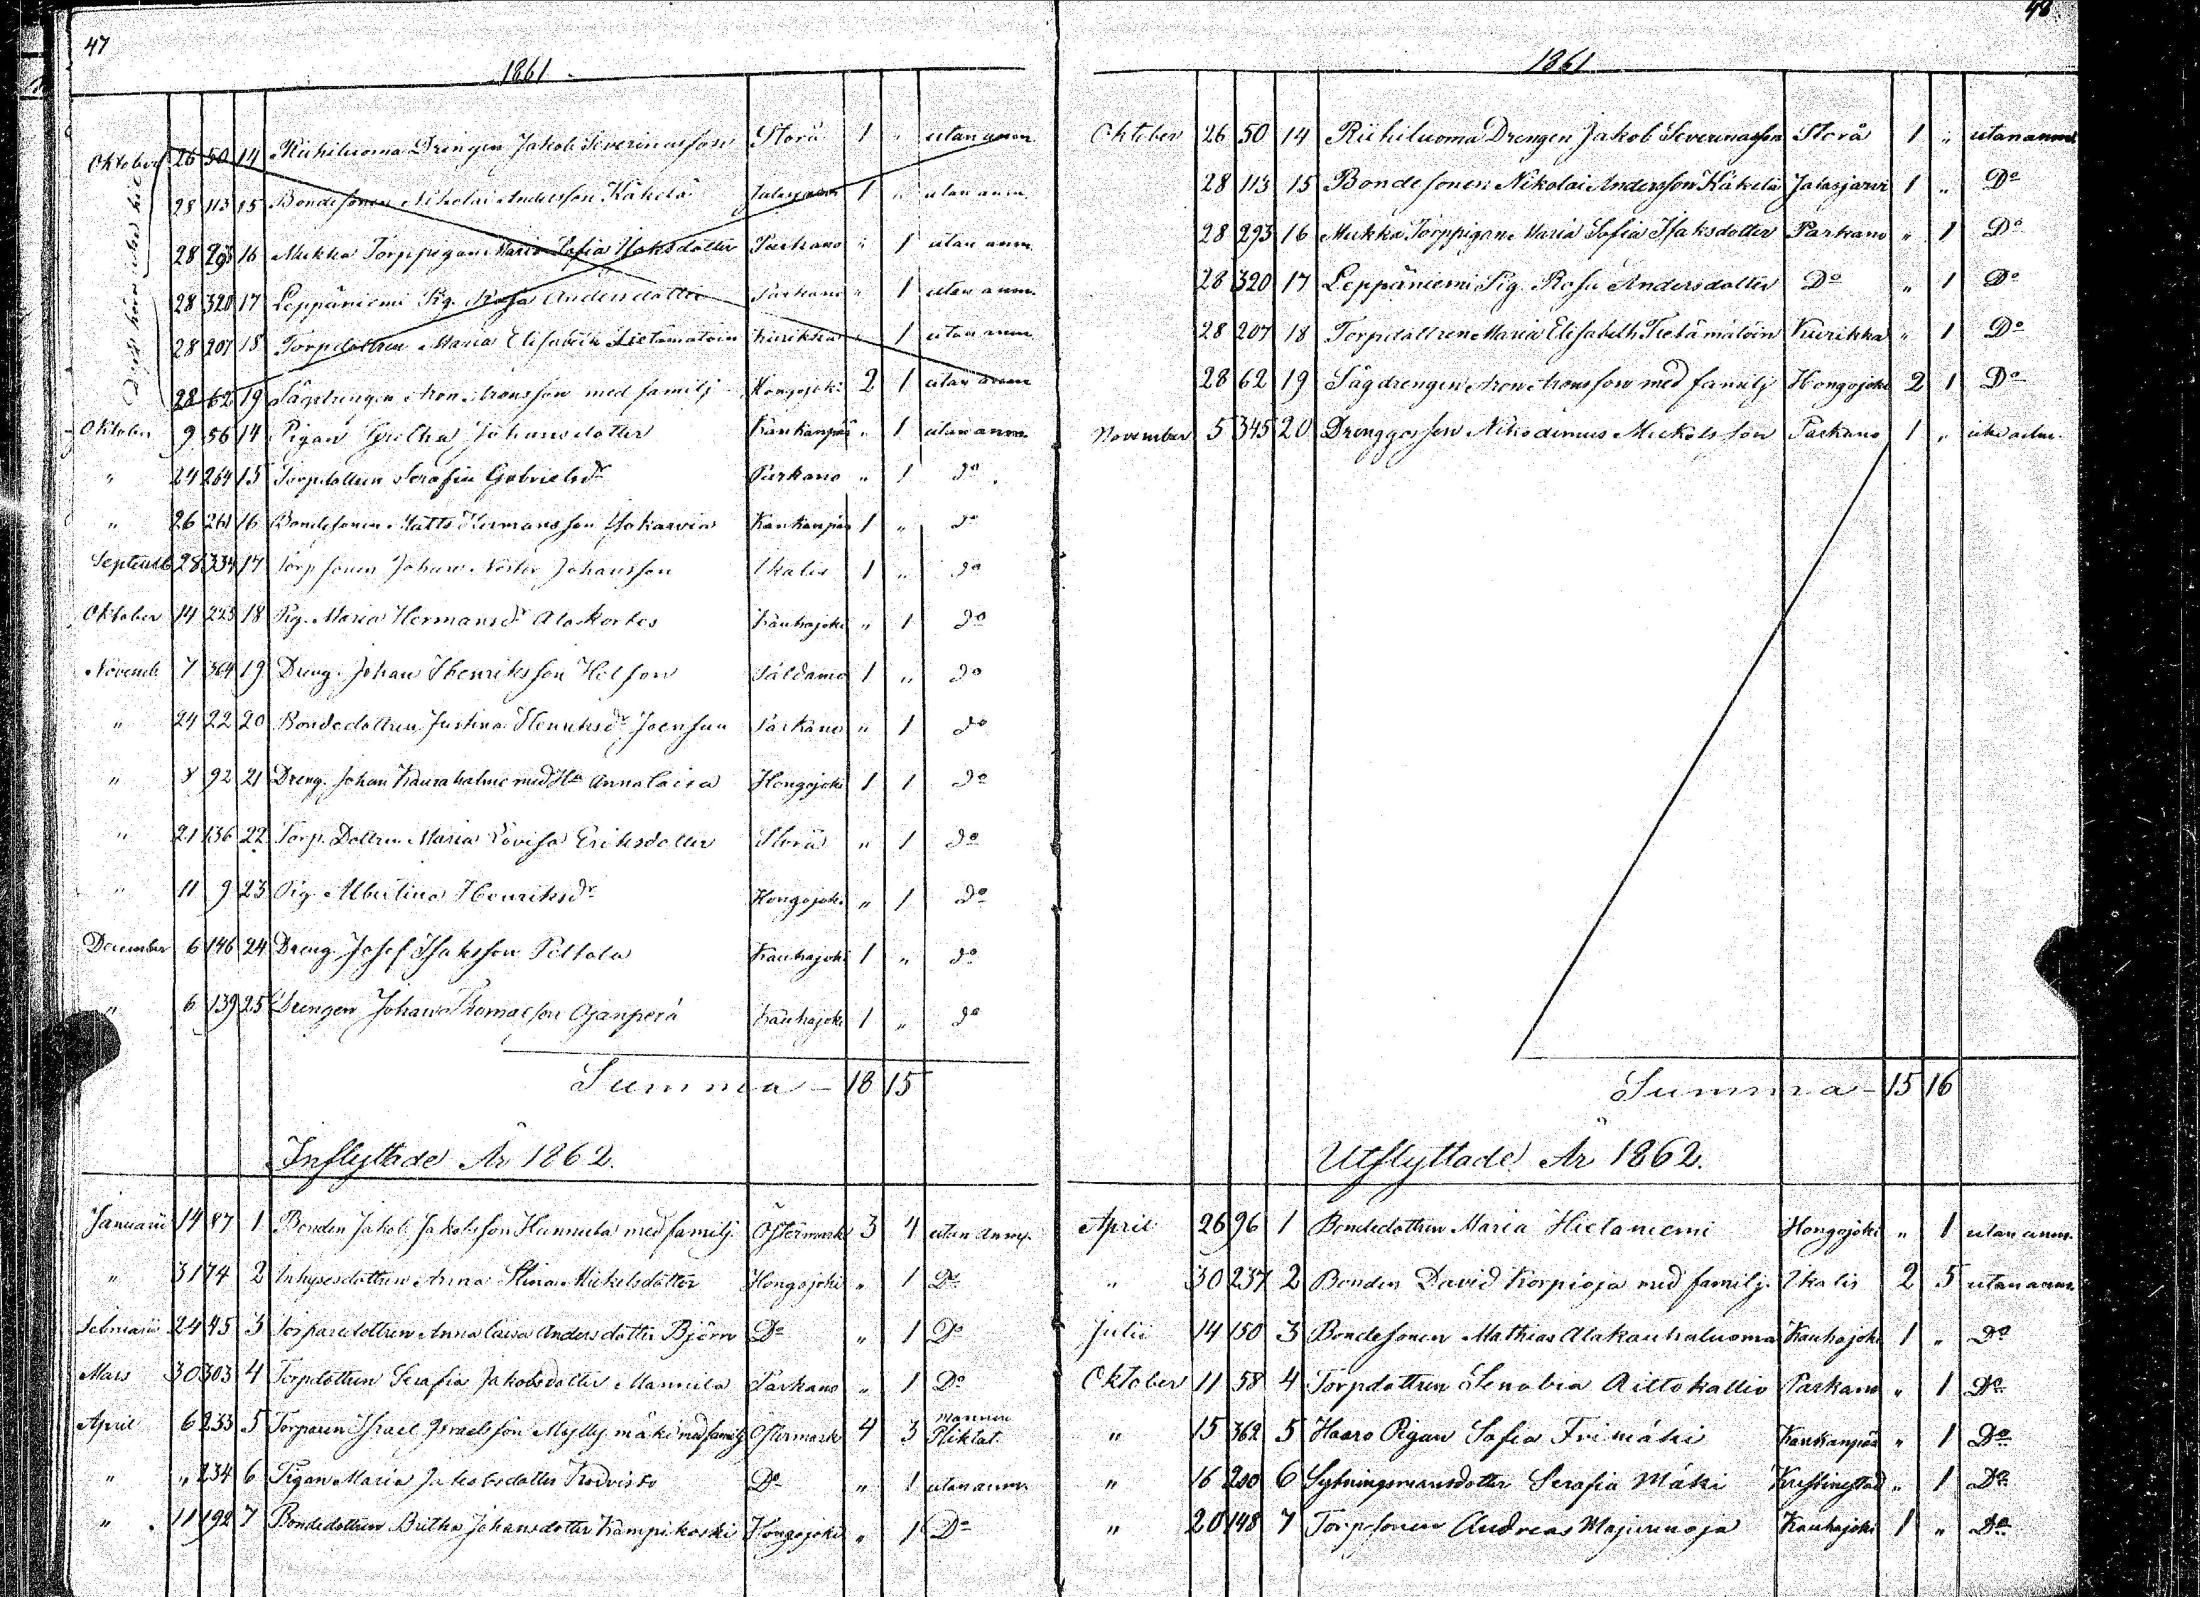 47
1861
Oktober 26 50 14 Riihiluoma Drengen Jakob Severinasson Storå 1 " utan anm.
28 113 15 Bondesonen Nikolai Andersson Käkelä Jalasjärvi 1 " utan anm.
28 293 16 Mukka Torppigan Maria Sofia Isaksdotter Parkano " 1 utan anm.
28 320 17 Leppäniemi Pig. Rosa Andersdotter Parkano " 1 utan anm.
28 207 18 Torpdottren Maria Elisabeth Kurikka " 1 utan anm.
28 62 19 Sågdrengen Aron Aronsson med familj Hongojoki 2 1 utan anm
Oktober 9 56 14 Pigan Gretha Johansdotter Kankanpää " 1 utan anm.
" 24 264 15 Torpdottren Serafia Gabrielsdr Parkano " 1 do
" 26 261 16 Bondesonen Matts Hermansson Kankanpää 1 " do
Septemb. 28 334 17 Torpsonen Johan Nestor Johansson Ikalis 1 " do
Oktober 14 223 18 Pig. Maria Hermansdr Alakortes Kauhajoki " 1 do
Novemb. 7 304 19 Dreng. Johan Henriksson Hilson 1 " do
" 24 22 20 Bondedottren Justina Henriksdr Joensuu Parkano " 1 do
" 8 92 21 Dreng. Johan med Hu Anna Caisa Hongojoki 1 1 do
" 21 136 22 Torp. Dottren Maria Lovisa Eriksdotter Storå " 1 do
" 11 9 23 Pig. Albertina Henriksdr Hongojoki " 1 do
December 6 146 24 Dreng. Josef Isaksson Peltola Kauhajoki 1 " do
" 6 139 25 Drengen Johan Thomasson Ojanperä Kauhajoki 1 " do
Summa - 18 15
Inflyttade År 1862.
Januarii 14 87 1 Bonden Jakob Jakobsson Hannula med familj. Östermark 3 4 utan anm.
" 31 74 2 Inhysesdottren Anna Stina Mickelsdotter Hongojoki " 1 Do
Februarii 24 45 3 Torparedottren Anna Caisa Andersdotter Björn Do " 1 Do
Mars 30 303 4 Torpdottren Serafia Jakobsdotter Mannila Parkano " 1 Do
April 6 233 5 Torparen Israel Israelsson Myllymäki med familj Östermark 4 3 mannen Pliktat.
" " 234 6 Pigan Maria Jakobsdotter Koivisto Do " 1 utan anm.
" 11 192 7 Bondedottren Britha Johansdotter Kampikoski Hongojoki " 1 Do
48
1861
Oktober 26 50 14 Riihiluoma Drengen Jakob Severinasson Storå 1 " utan anm
28 113 15 Bondesonen Nikolai Andersson Käkelä Jalasjärvi 1 " Do
28 293 16 Mukka Torppigan Maria Sofia Isaksdotter Parkano " 1 Do
28 320 17 Leppäniemi Pig. Rosa Andersdotter Do " 1 Do
28 207 18 Torpdottren Maria Elisabeth Kurikka " 1 Do
28 62 19 Sågdrengen Aron Aronsson med familj Hongojoki 2 1 Do
November 5 345 20 Drenggosson Nikodemus Mickelsson Parkano 1 "
Summa - 15 16
Utflyttade År 1862.
April 26 96 1 Bondedottren Maria Hietaniemi Hongojoki " 1 utan anm.
" 30 237 2 Bonden David Korpioja med familj. Ikalis 2 5 utan anm.
Julii 14 150 3 Bondesonen Mathias Alakauhaluoma Kauhajoki 1 " Do
Oktober 11 58 4 Torpdottren Senobia Aittokallio Parkano " 1 Do
" 15 362 5 Haaro Pigan Sofia Frimäki Kankanpää " 1 Do
" 16 200 6 Sytningsmansdotter Serafia Mäki Kristinestad " 1 Do
" 20 148 7 Torpsonen Andreas Majurinoja Kauhajoki 1 " Do